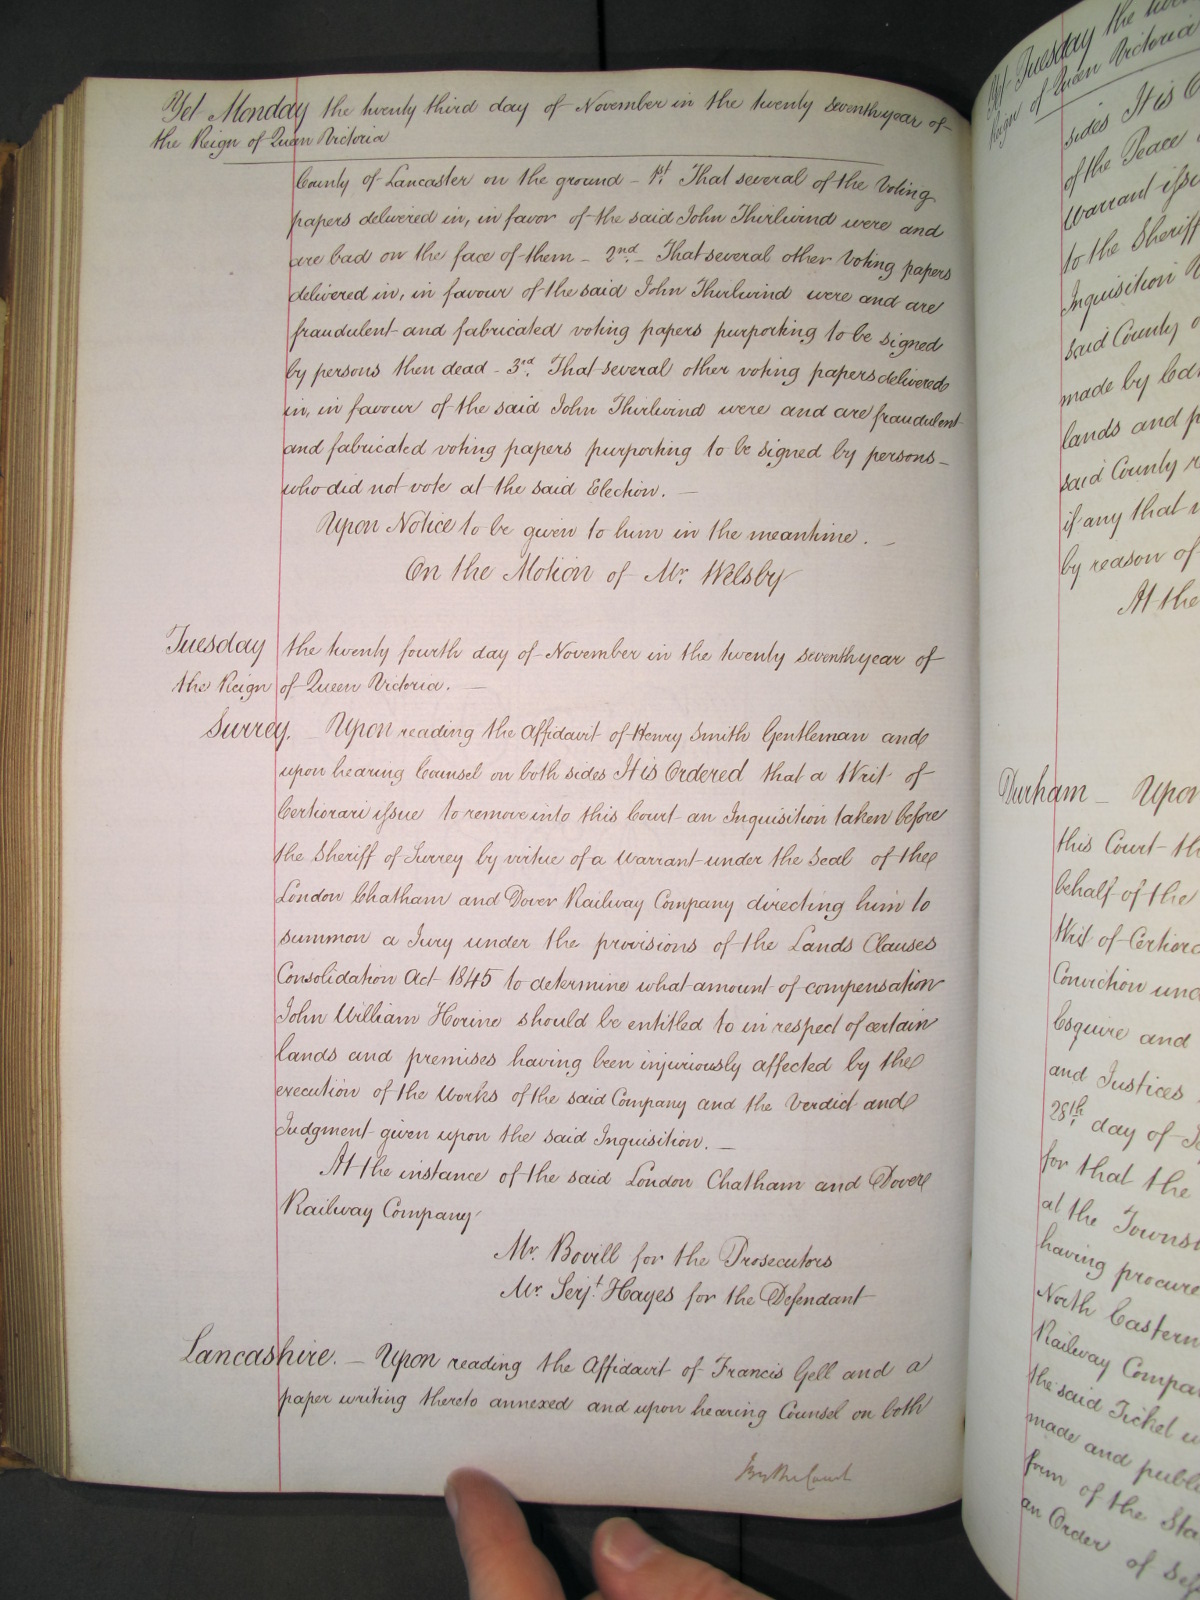 Yet Monday the twenty third day of November in the twenty seventh year of
the Reign of Queen Victoria
County of Lancaster on the ground – 1st. That several of the Voting
papers delivered in, in favor of the said John Thirlwind were and
are bad on the face of them – 2nd. – That several other Voting papers
delivered in, in favour of the said John Thirlwind were and are
fraudulent and fabricated voting papers purporting to be signed
by persons then dead – 3rd. That several other voting papers delivered
in, in favour of the said John Thirlwind were and are fraudulent
and fabricated voting papers purporting to be signed by persons –
who did not vote at the said Election. –
Upon Notice to be given to him in the meantime. –
On the Motion of Mr. Welsby
Tuesday the twenty fourth day of November in the twenty seventh year of
the Reign of Queen Victoria. –
Surrey. – Upon reading the Affidavit of Henry Smith Gentleman and
upon hearing Counsel on both sides It is Ordered that a Writ of
Certiorari issue to remove into this Court an Inquisition taken before
the Sheriff of Surrey by virtue of a Warrant under the Seal of the
London Chatham and Dover Railway Company directing him to
summon a Jury under the provisions of the Lands Clauses
Consolidation Act 1845 to determine what amount of compensation
John William Horine should be entitled to in respect of certain
lands and premises having been injuriously affected by the
execution of the Works of the said Company and the Verdict and
Judgment given upon the said Inquisition. –
At the instance of the said London Chatham and Dover
Railway Company
Mr. Bovill for the Prosecutors
Mr. Serjt. Hayes for the Defendant
Lancashire. – Upon reading the Affidavit of Francis Gell and a
paper writing thereto annexed and upon hearing Counsel on both
By the Court
Yet Tuesday the
Reign of Queen Victoria
sides It is
of the Peace
Warrant
to the Sheriff
Inquisition
said County
made by
lands and
said County
if any that
by reason of
At the
Durham – Upon
this Court
behalf of the
Writ of
Conviction
Esquire and
and Justices
28th. day of
for that the
at the
having
North Eastern
Railway
the said Ticket
made and
form of the
an Order of